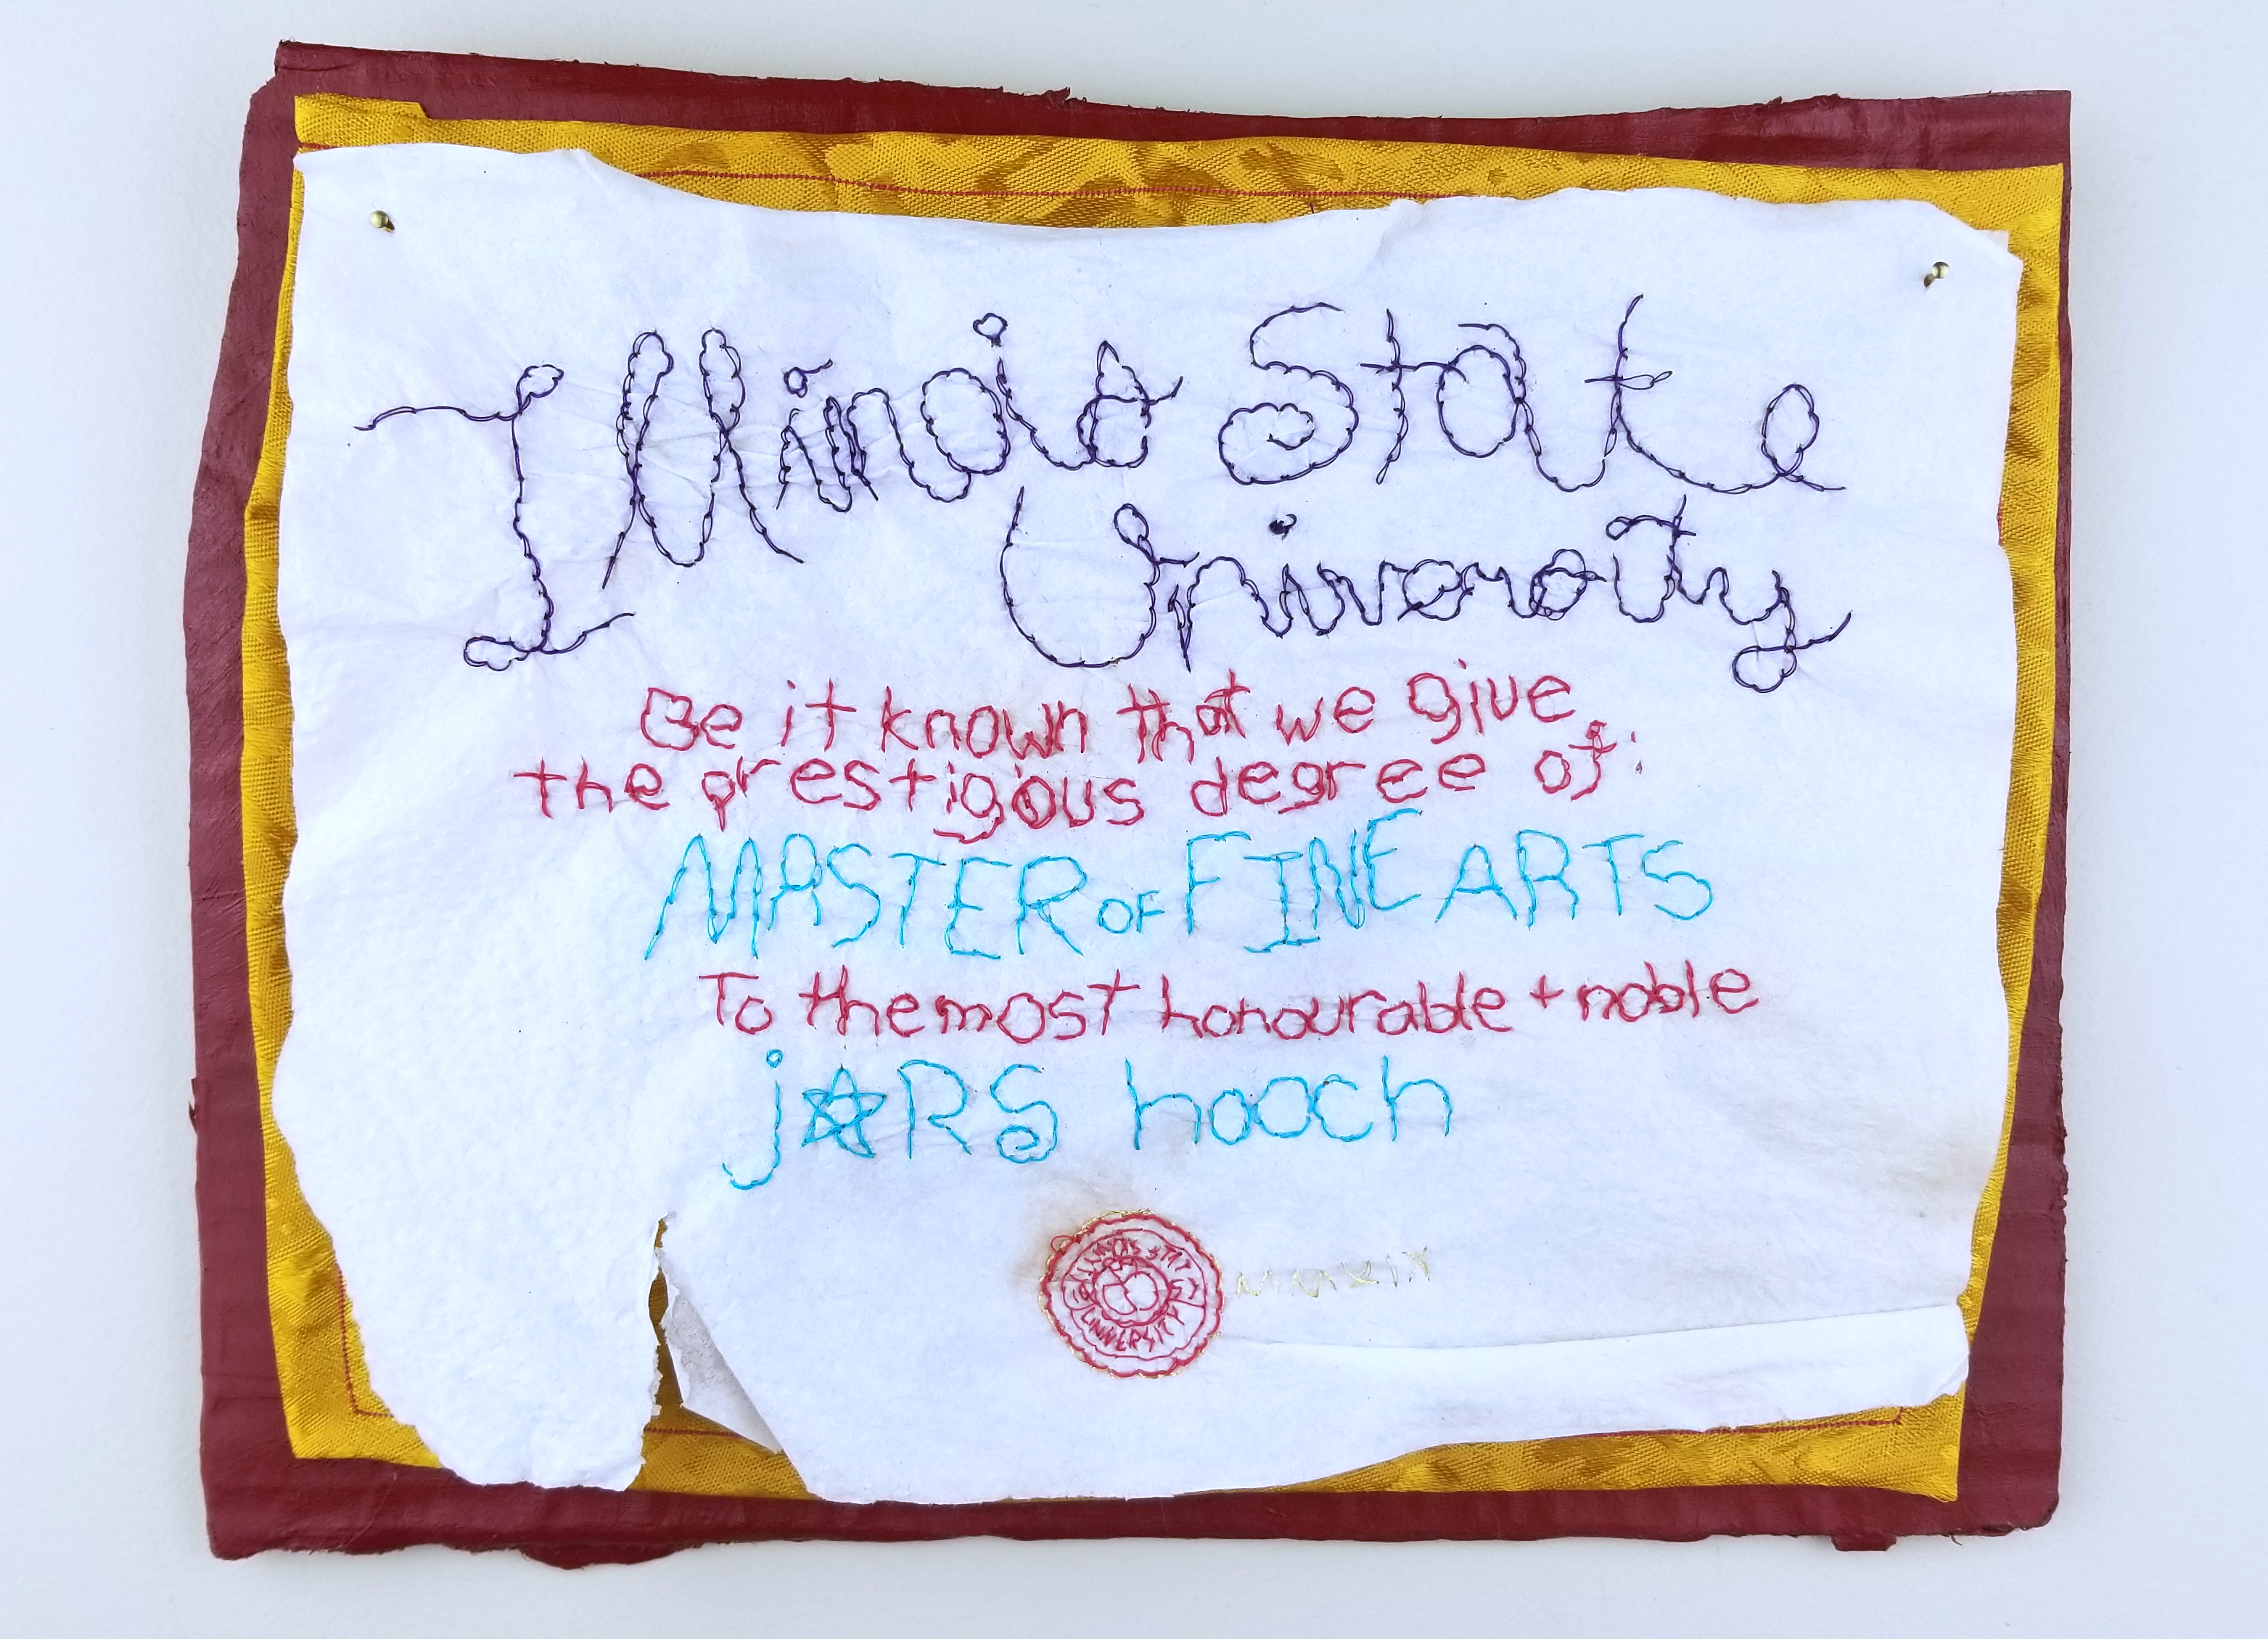 Illinois State
University
Be it known that we give
the prestigious degree of:
MASTER OF FINE ARTS
To the most honourable + noble
jARS hooch
ILLINOIS STATE
UNIVERSITY